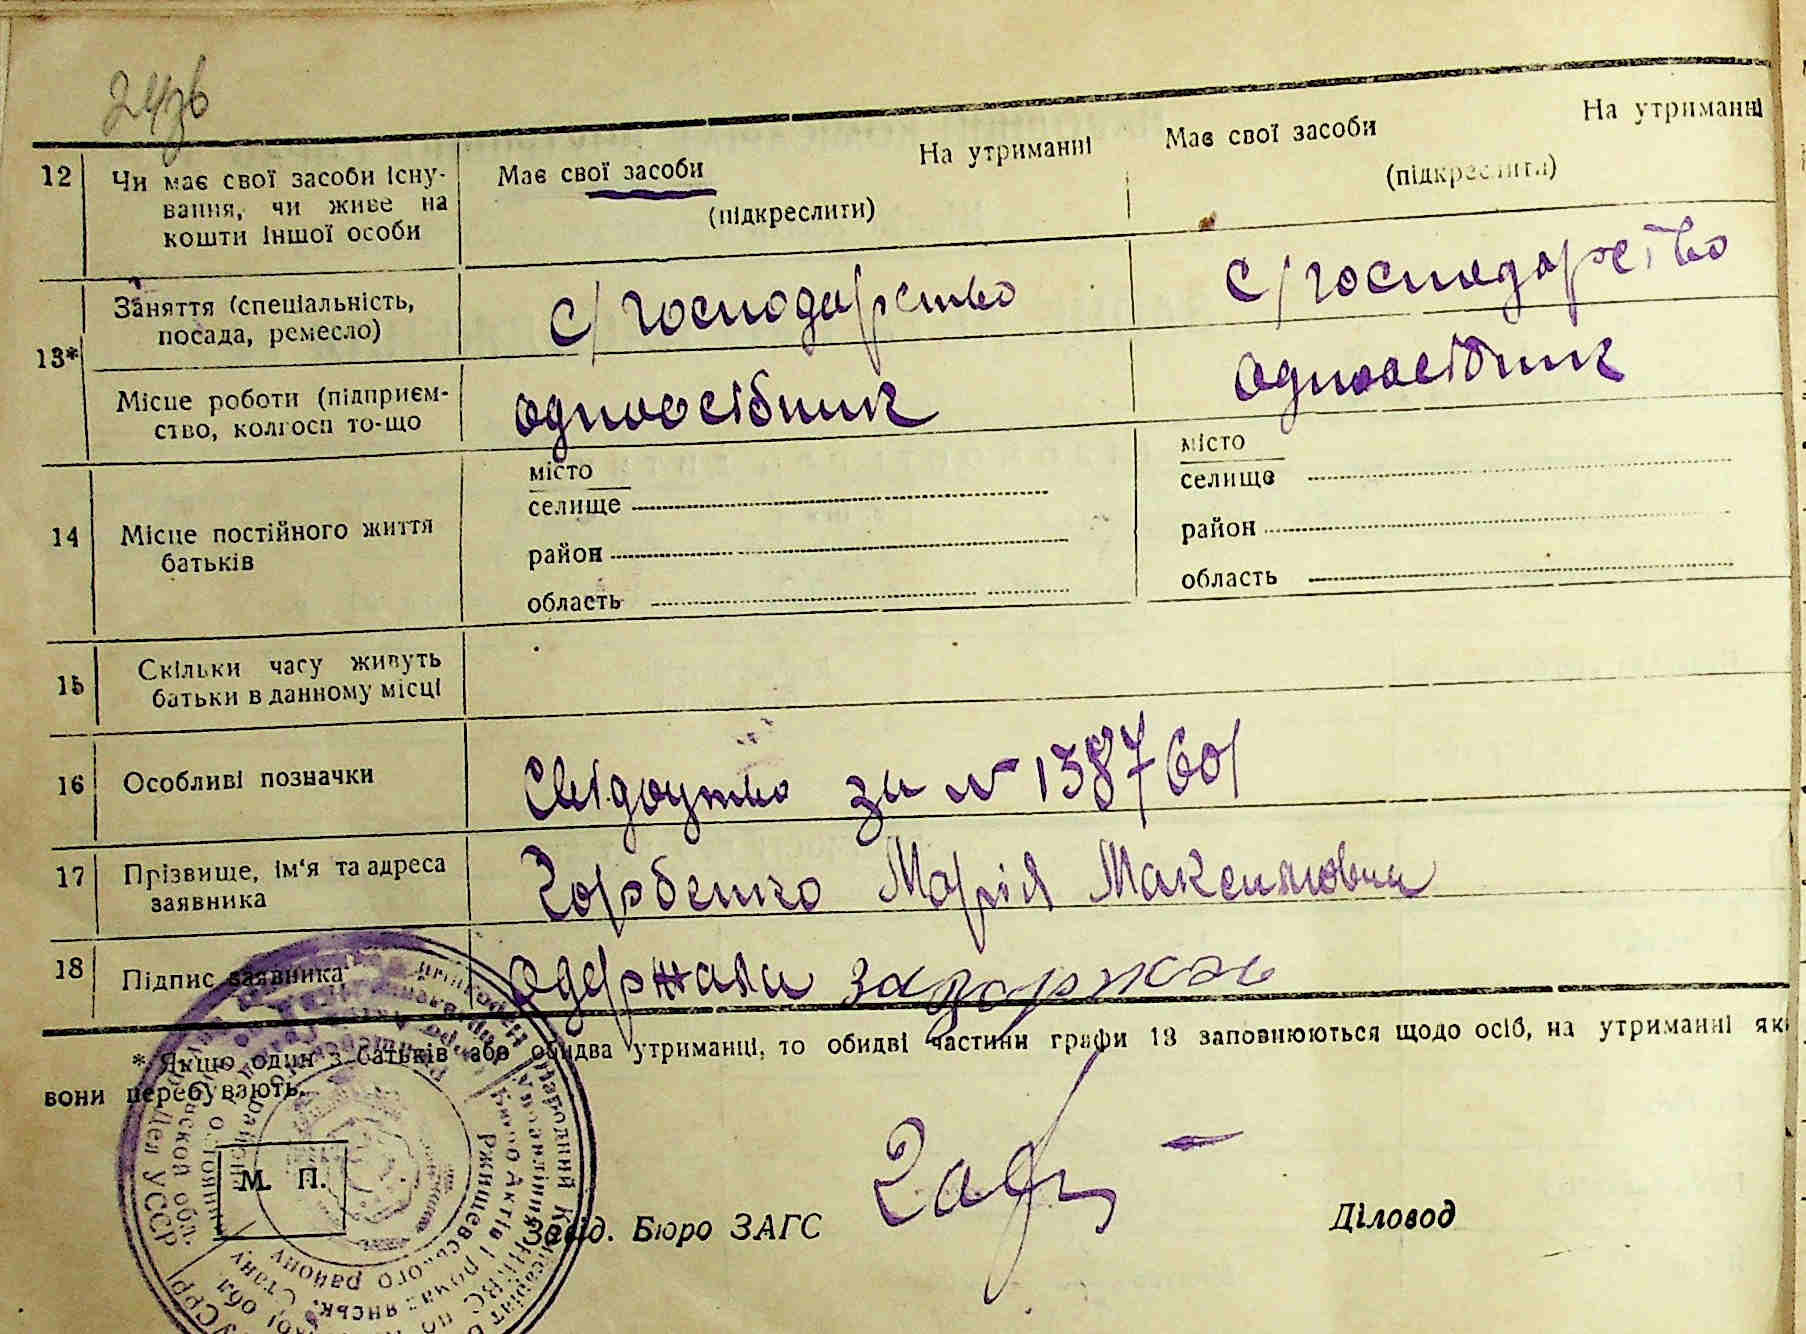 24зв
12 Чи має свої засоби існу-
вання, чи живе на
кошти іншої особи
Має свої засоби На утриманні
(підкреслити)
Має свої засоби На утриманні
(підкреслити)
13* Заняття (спеціальність,
посада, ремесло)
с/господарство
с/господарство
Місце роботи (підприєм-
ство, колгосп то-що
одноосібник
одноосібник
14 Місце постійного життя
батьків
місто
селище
район
область
місто
селище
район
область
15 Скільки часу живуть
батьки в данному місці
16 Особливі позначки
Свідоцтво за № 138760
17 Прізвище, ім'я та адреса
заявника
Горбенко Марія Максимовна
18 Підпис заявника
одержала
* Якщо один з батьків або обидва утриманці, то обидві частини графи 13 заповнюються щодо осіб, на утриманні як
вони перебувають.
М. П.
Завід. Бюро ЗАГС
Діловод
Народний Комісаріат
Управління НКВС по
Бюро Актів Громадянськ. Стану
Ржищевського району